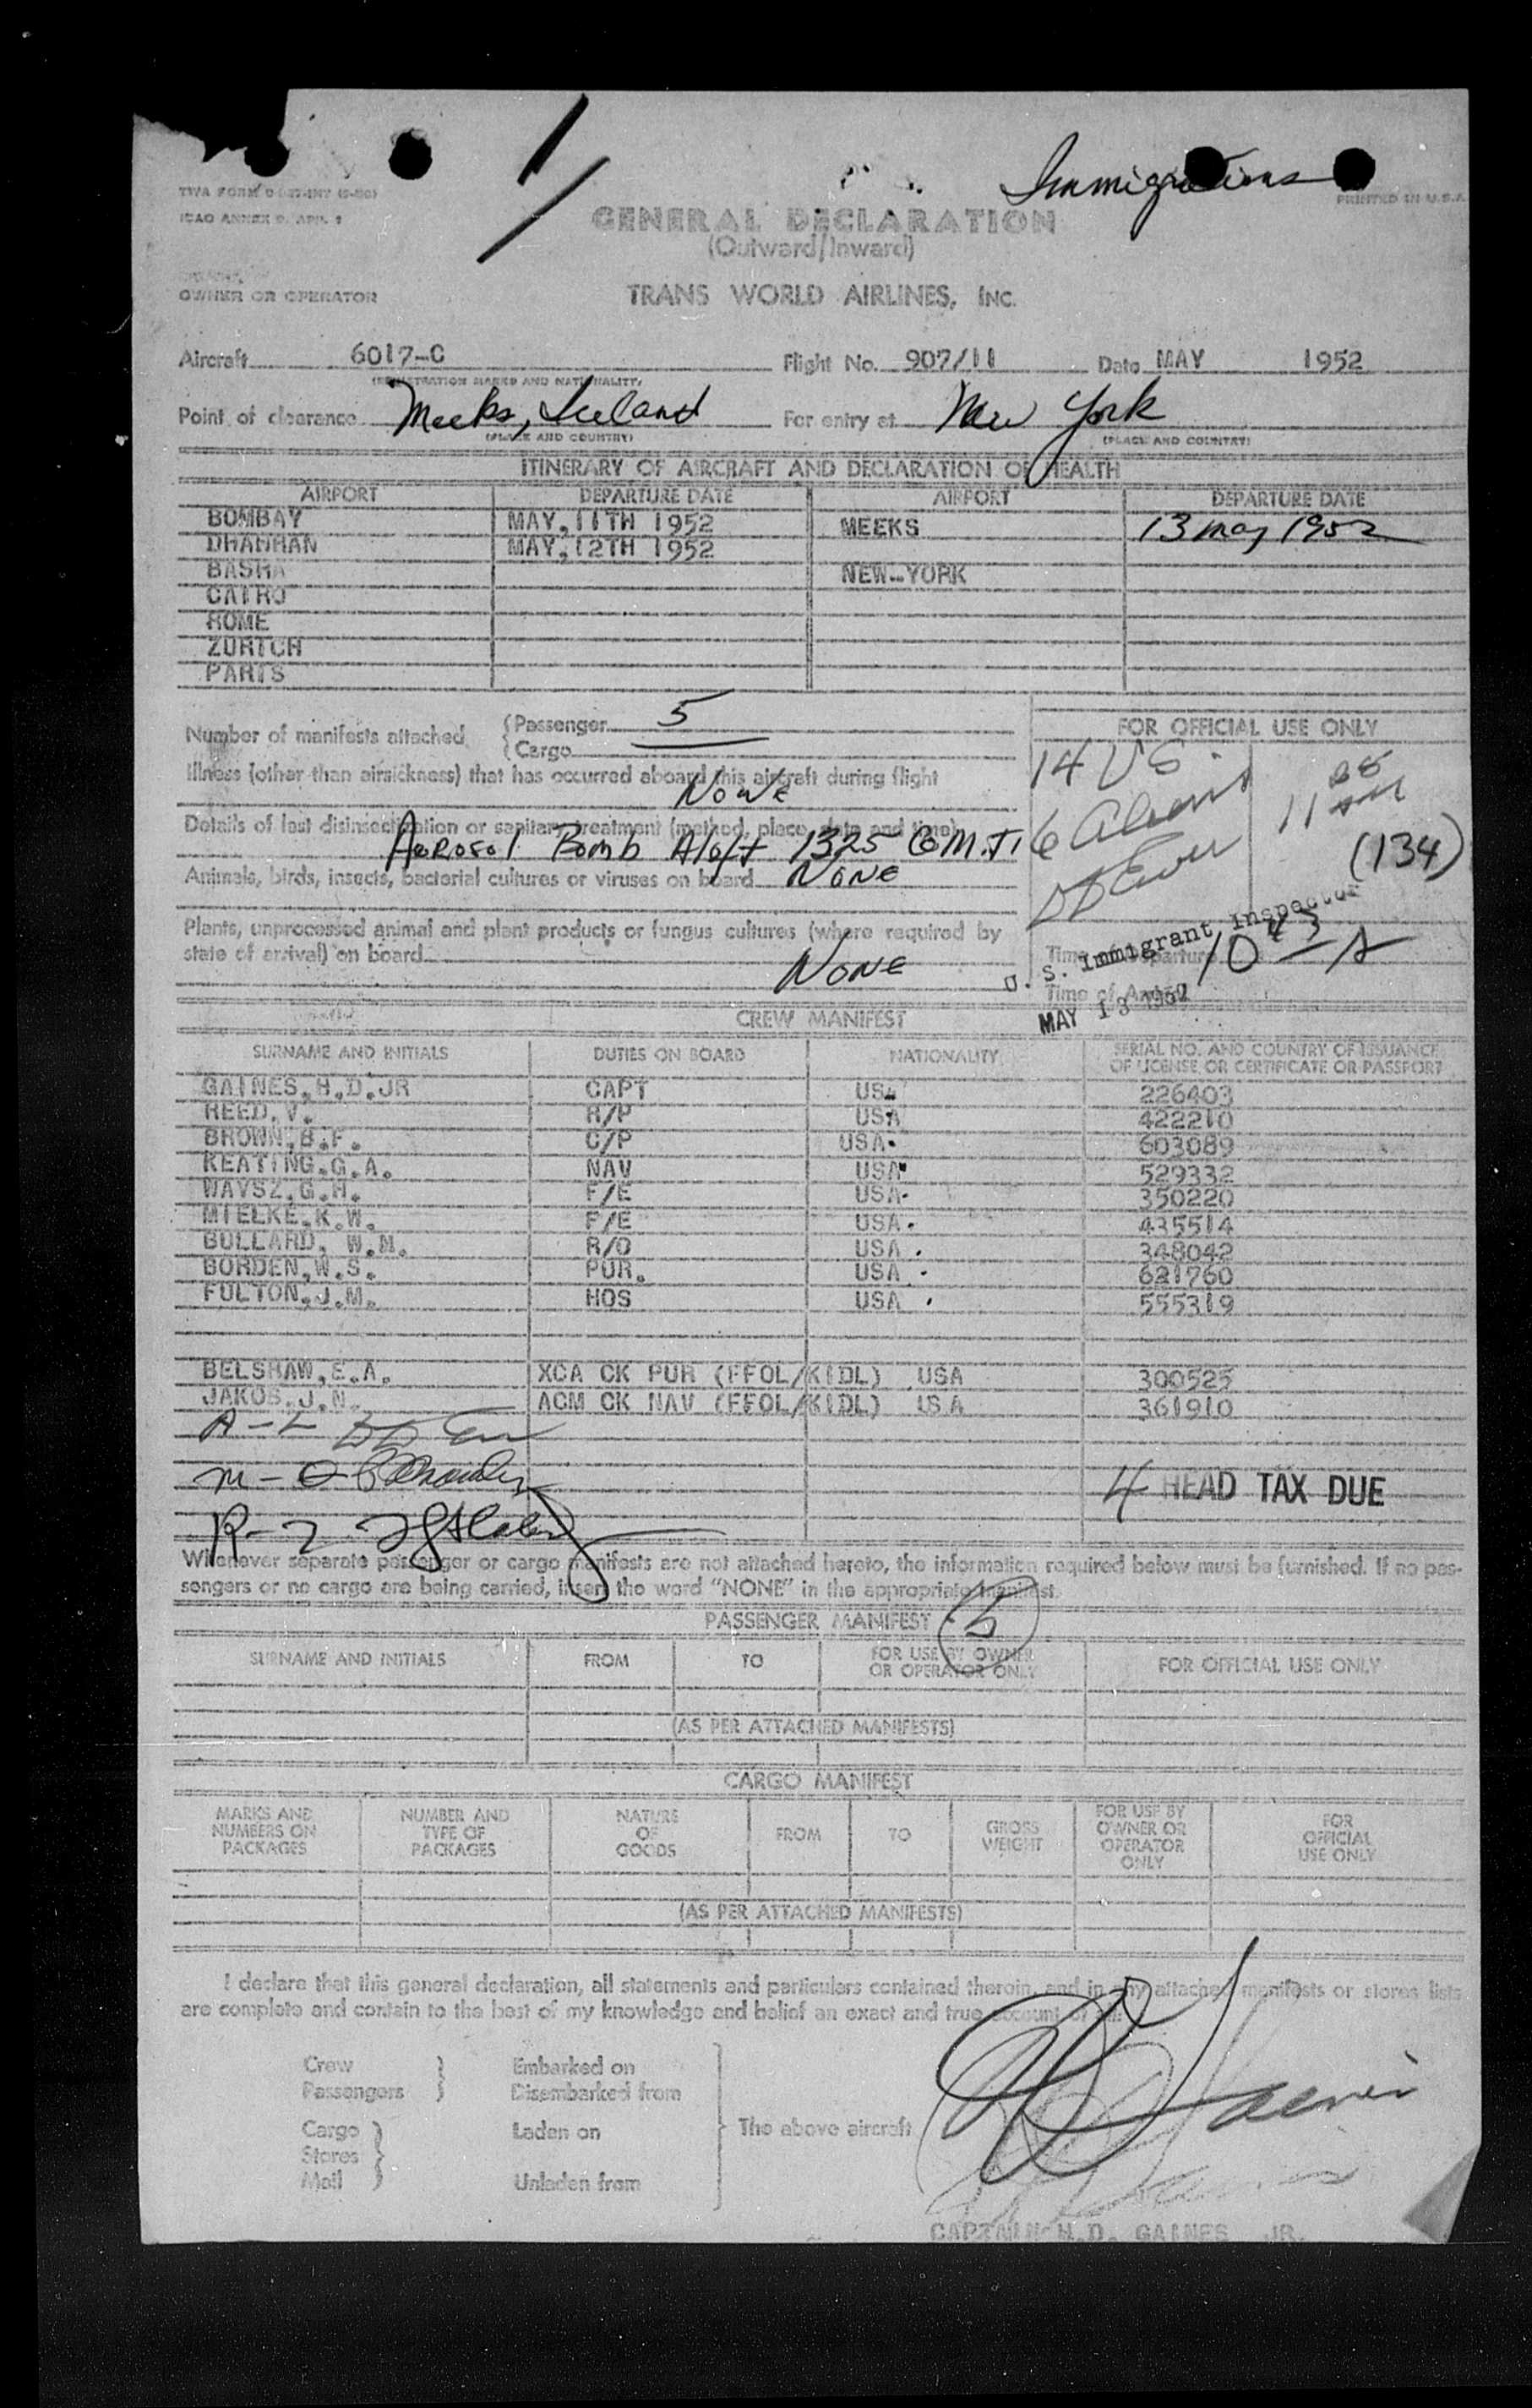 Immigrations
TWA FORM
ICAO ANNEX 9, APP. 1
PRINTED IN U.S.A.
GENERAL DECLARATION
(Outward/Inward)
OWNER OR OPERATOR
TRANS WORLD AIRLINES, INC.
Aircraft 6017-C Flight No. 907/11 Date MAY 1952
(REGISTRATION MARKS AND NATIONALITY)
Point of clearance Meeks, Iceland For entry at New York
(PLACE AND COUNTRY) (PLACE AND COUNTRY)
ITINERARY OF AIRCRAFT AND DECLARATION OF HEALTH
AIRPORT DEPARTURE DATE AIRPORT DEPARTURE DATE
BOMBAY MAY,11TH 1952 MEEKS 13 May 1952
DHAHRAN MAY,12TH 1952
BASRA NEW-YORK
CAIRO
ROME
ZURICH
PARIS
Number of manifests attached (Passenger 5
(Cargo
FOR OFFICIAL USE ONLY
14 US
6 Aliens
11
(134)
Illness (other than airsickness) that has occurred aboard this aircraft during flight
None
Details of last disinsectization or sanitary treatment (method, place, date and time)
Aerosol Bomb Aloft 1325 G.M.T.
Animals, birds, insects, bacterial cultures or viruses on board NONE
Plants, unprocessed animal and plant products or fungus cultures (where required by
state of arrival) on board NONE
U. S. Immigrant Inspector
Time of Departure 10 43 A
Time of Arrival
MAY 13 1952
CREW MANIFEST
SURNAME AND INITIALS DUTIES ON BOARD NATIONALITY SERIAL NO. AND COUNTRY OF ISSUANCE
OF LICENSE OR CERTIFICATE OR PASSPORT
GAINES,H.D.JR CAPT USA 226403
REED,V. R/P USA 422210
BROWN,B.F. C/P USA. 603089
KEATING,G.A. NAV USA 529332
WAYSZ,G.H. F/E USA. 350220
MIELKE,K.W. F/E USA. 435514
BULLARD, W.M. R/O USA . 348042
BORDEN,W.S. PUR. USA . 621760
FULTON,J.M. HOS USA . 555319
BELSHAW,E.A. XCA CK PUR (FFOL/KIDL) USA 300525
JAKOB,J.N. ACM CK NAV (FFOL/KIDL) USA 361910
4 HEAD TAX DUE
Whenever separate passenger or cargo manifests are not attached hereto, the information required below must be furnished. If no pas-
sengers or no cargo are being carried, insert the word "NONE" in the appropriate manifest.
PASSENGER MANIFEST 5
SURNAME AND INITIALS FROM TO FOR USE BY OWNER
OR OPERATOR ONLY FOR OFFICIAL USE ONLY
(AS PER ATTACHED MANIFESTS)
CARGO MANIFEST
MARKS AND
NUMBERS ON
PACKAGES NUMBER AND
TYPE OF
PACKAGES NATURE
OF
GOODS FROM TO GROSS
WEIGHT FOR USE BY
OWNER OR
OPERATOR
ONLY FOR
OFFICIAL
USE ONLY
(AS PER ATTACHED MANIFESTS)
I declare that this general declaration, all statements and particulars contained therein, and in any attached manifests or stores lists
are complete and contain to the best of my knowledge and belief an exact and true account of all:
Crew Embarked on
Passengers Disembarked from
Cargo Laden on The above aircraft
Stores
Mail Unladen from
CAPTAIN H.D. GAINES JR.